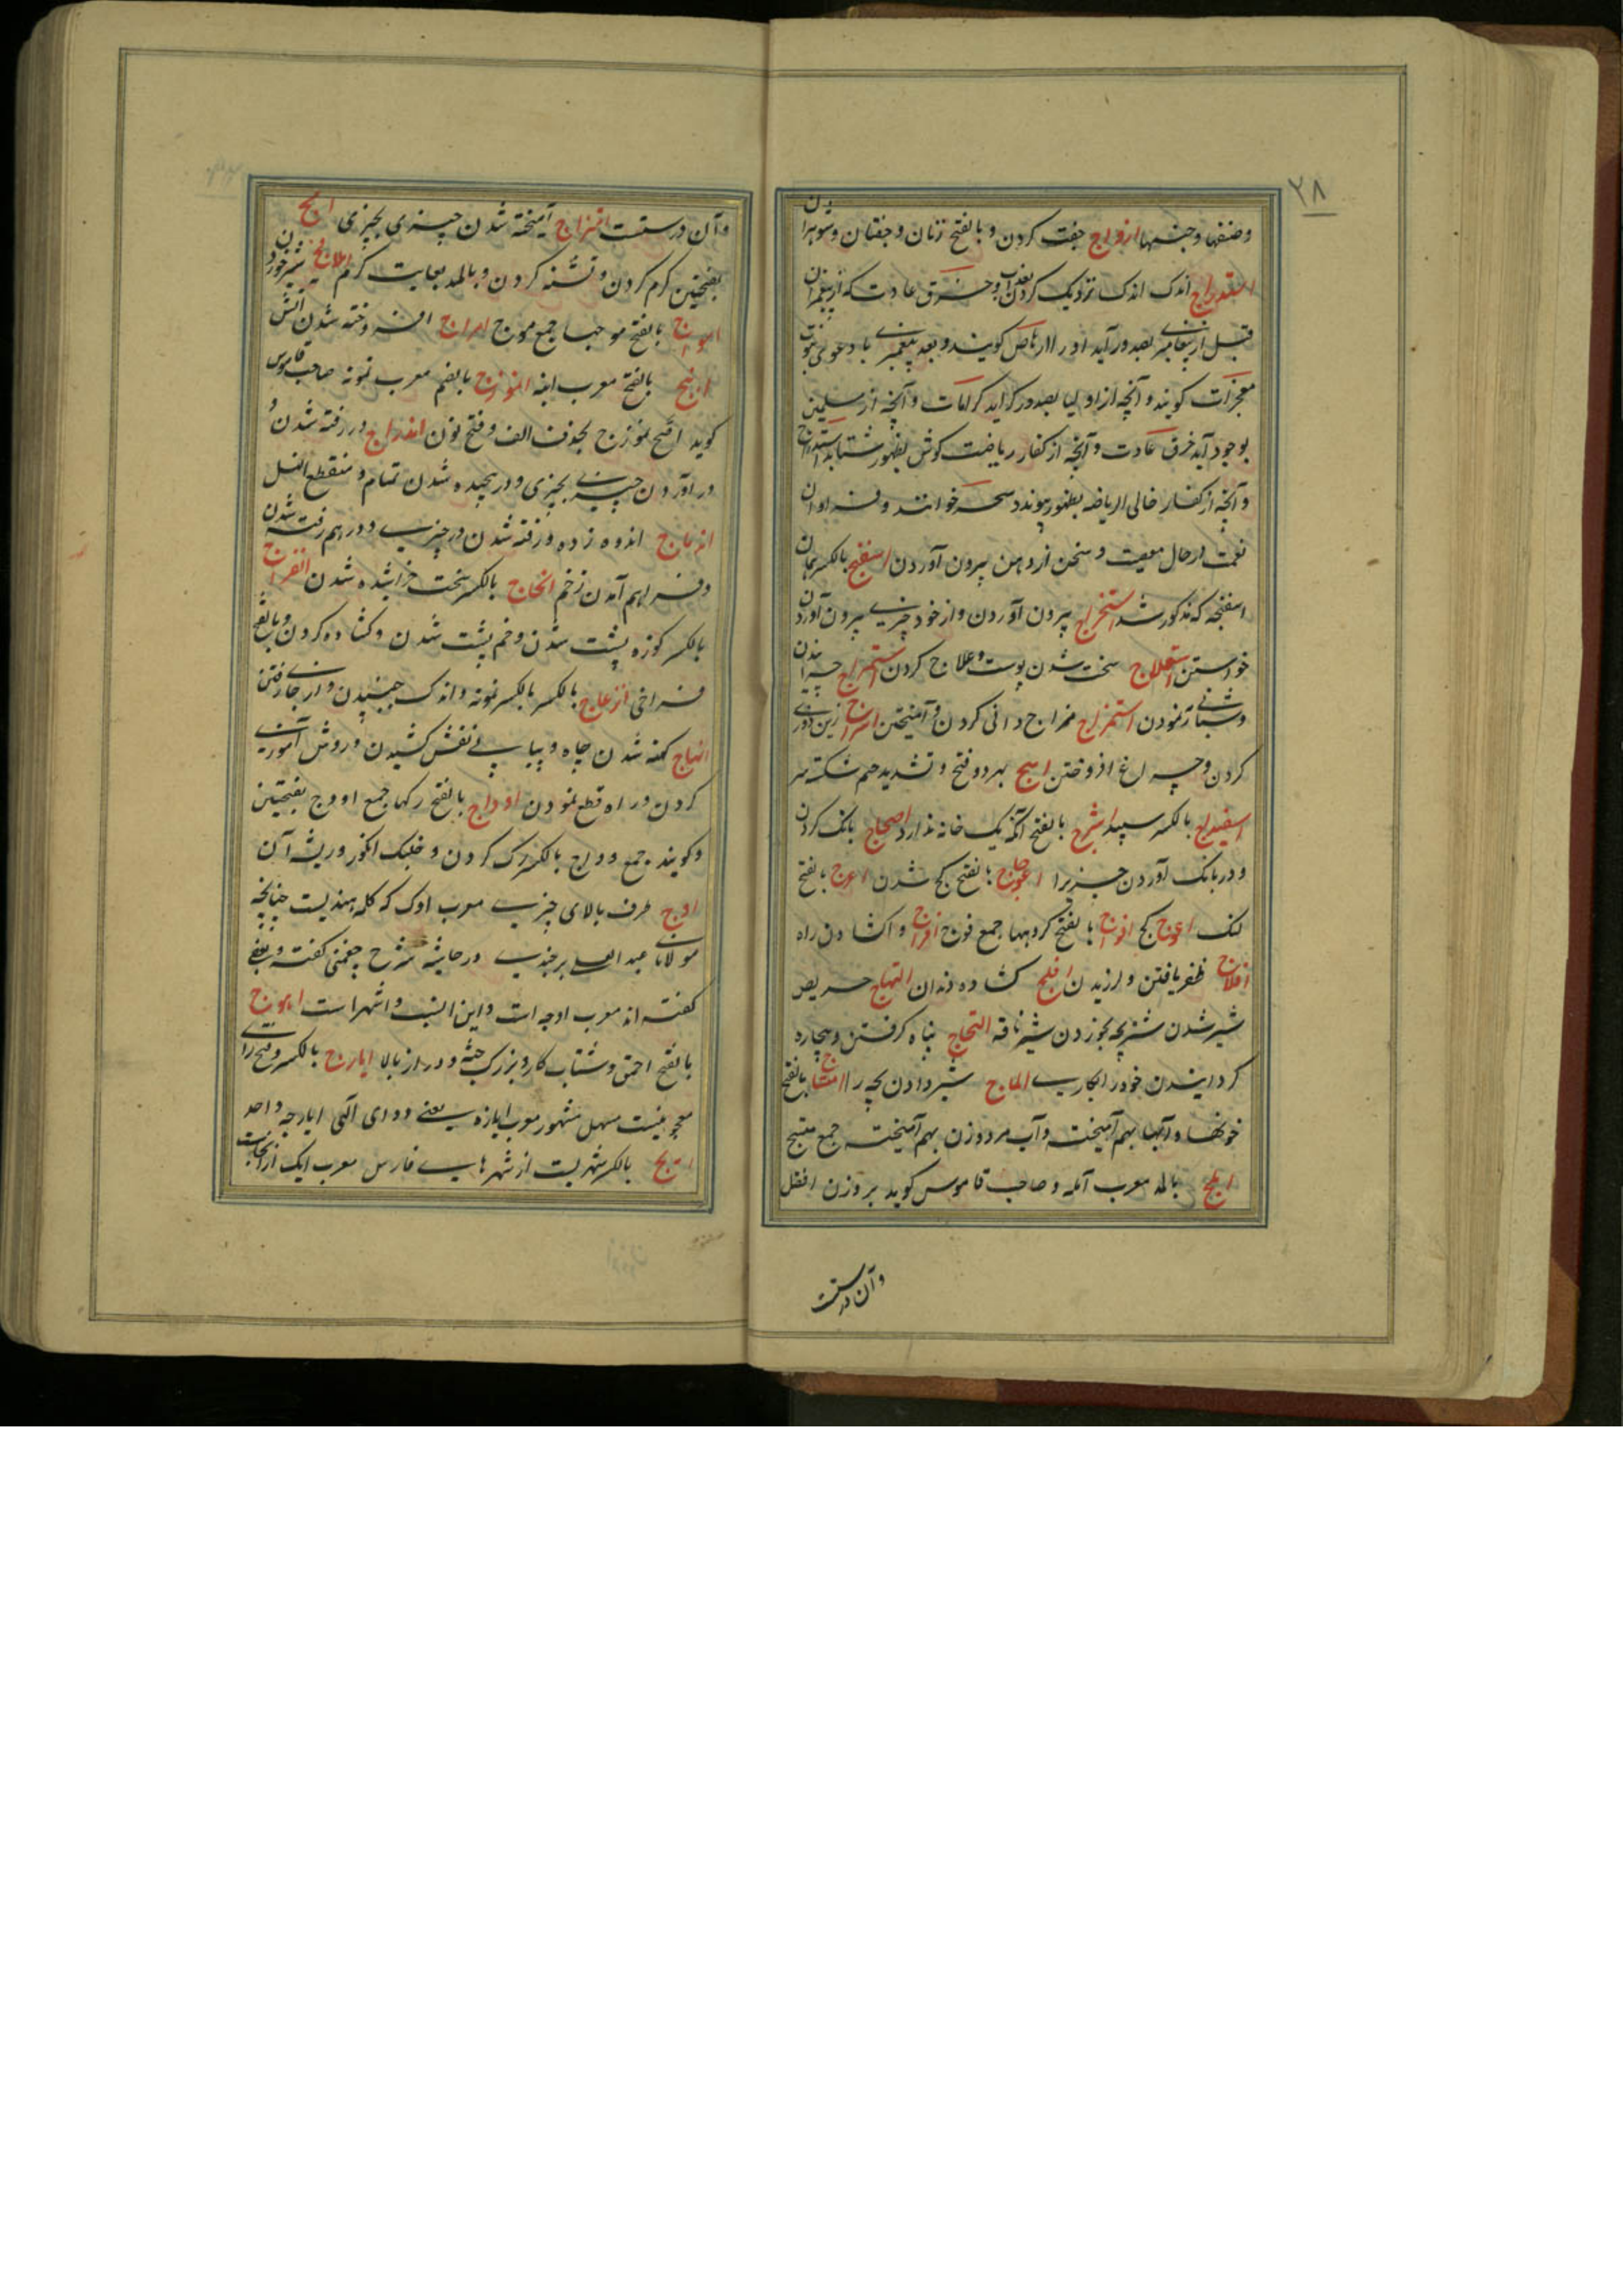 ۲۸
وصنفها وجنسها ازواج جفت کردن و بالفتح زنان و جفتان و شوهران
استدراج اندک اندک نزدیک کردن بعذاب و خرق عادت که از پیغمبران
قبل از پیغامبری بصدور آید او را ارهاص کویند و بعد پیغمبری با دعوی نبوت
معجزات کویند و آنچه از اولیا بصدور کراید کرامات و آنچه از مسلمین
بوجود آید خرق عادت و آنچه از کفار ریاضت کوش بظهور شتابد استدراج
و آنچه از کفار خالی الریاضه بظهور پیوندد سحر خوانند و فراوان
نعمت در حال معصیت و سخن از دهن بیرون آوردن اسفنج بالکسر همان
اسفنجه که مذکور شد استخراج بیرون آوردن و از خود چیزی بیرون آوردن
خواستن استعلاج سخت شدن پوست و علاج کردن استمراج
نمودن استمزاج مزاج دانی کردن و آمیختن اسراج زین
کردن و چراغ افروختن اشج بهر دو فتح و تشدید جیم شکسته سر
اسفیداج بالکسر سپیدا اشرج بالفتح آنکه یک خانه ندارد اصجاج بانک کردن
و در بانک آوردن چیزیرا اعوجاج بالفتح کج شدن اعرج بالفتح
لنک اعوج کج افواج بالفتح کروهها جمع فوج افراج واکشادن راه
افلاج ظفر یافتن و لرزیدن افلج کشاده دندان التهاج حریص
شیر شدن شتربچه بخوردن شیر ناقه التحاج پناه کرفتن و بیچاره
کردانیدن خود را بکاری الماج شیر دادن بچه را امشاج بالفتح
خونها و آبها بهم آمیخته و آب مرد و زن بهم آمیخته جمع مشج
املج بالمد معرب آمله و صاحب قاموس کوید بر وزن افعل
وآن درست
وآن درستست امتزاج آمیخته شدن چیزی بچیزی امج
بفتحتین کرم کردن و تشنه کردن و بالمد بغایت کرم املاج شیر خوردن
امواج بالفتح موجها جمع موج امراج افروخته شدن آتش
انبج بالفتح معرب انبه انموذج بالضم معرب نمونه صاحب قاموس
کوید اصح نموذج بحذف الف و فتح نون اندراج در رفته شدن و
در آوردن چیزی بچیزی و در پیچیده شدن تمام و منقطع النسل
اندماج اندوه زده و رفته شدن در چیزی و در هم رفته شدن
و فراهم آمدن زخم انحاج بالکسر سخت خراشیده شدن انفراج
بالکسر کوزه پشت شدن و خم پشت شدن و کشاده کردن و بالفتح
فراخی انزعاج بالکسر بالکسر نمونه و اندک جنبیدن و از جای رفتن
انهاج کهنه شدن جامه و پیاپی نفس کشیدن و روش آموزی
کردن و راه قطع نمودن اوداج بالفتح رکها جمع اودج بفتحتین
و کویند جمع ودج بالکسر کردن و انکور و ریشه آن
اوج طرف بالای چیزی معرب اوک که کله هندیست چنانچه
مولانای عبد العلی برجندی در حاشیه شرح چغمنی کفته و بعضی
کفته اند معرب اوجه است و این انسب و اشهر است اهوج
بالفتح احمق و شتاب کار و بزرک جثه و دراز بالا ایارج بالکسر و فتح را
معجونیست مسهل مشهور معرب ایازه یعنی دوای الهی ایارجه واحد
ایج بالکسر شهریست از شهرهای فارس معرب ایک از آنجاست